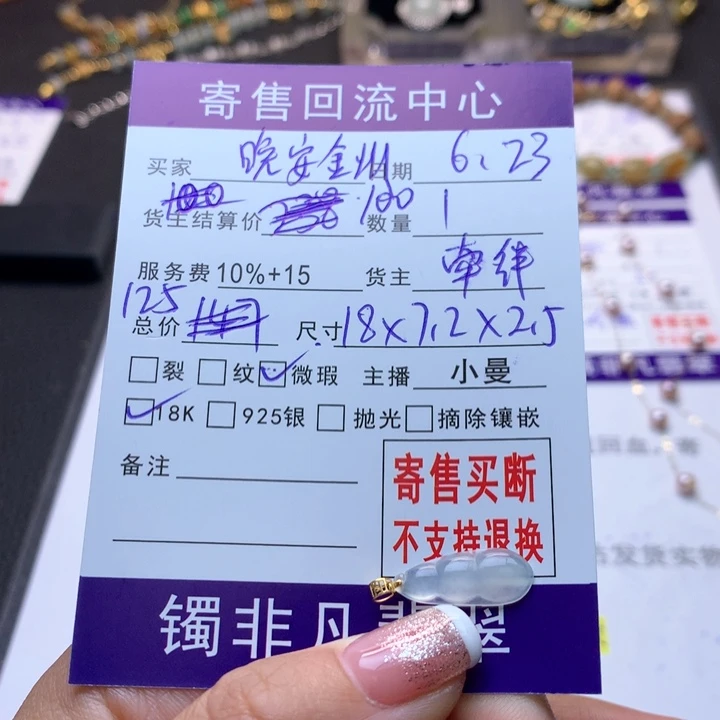 寄售回流中心
买家 晚安全州 日期 6.23
货主结算价 100 数量 1
服务费 10%+15 货主 牵绊
125
总价 尺寸 18×7.2×2.5
裂 纹 微瑕 主播 小曼
18K 925银 抛光 摘除镶嵌
备注
寄售买断
不支持退换
镯非凡翡翠